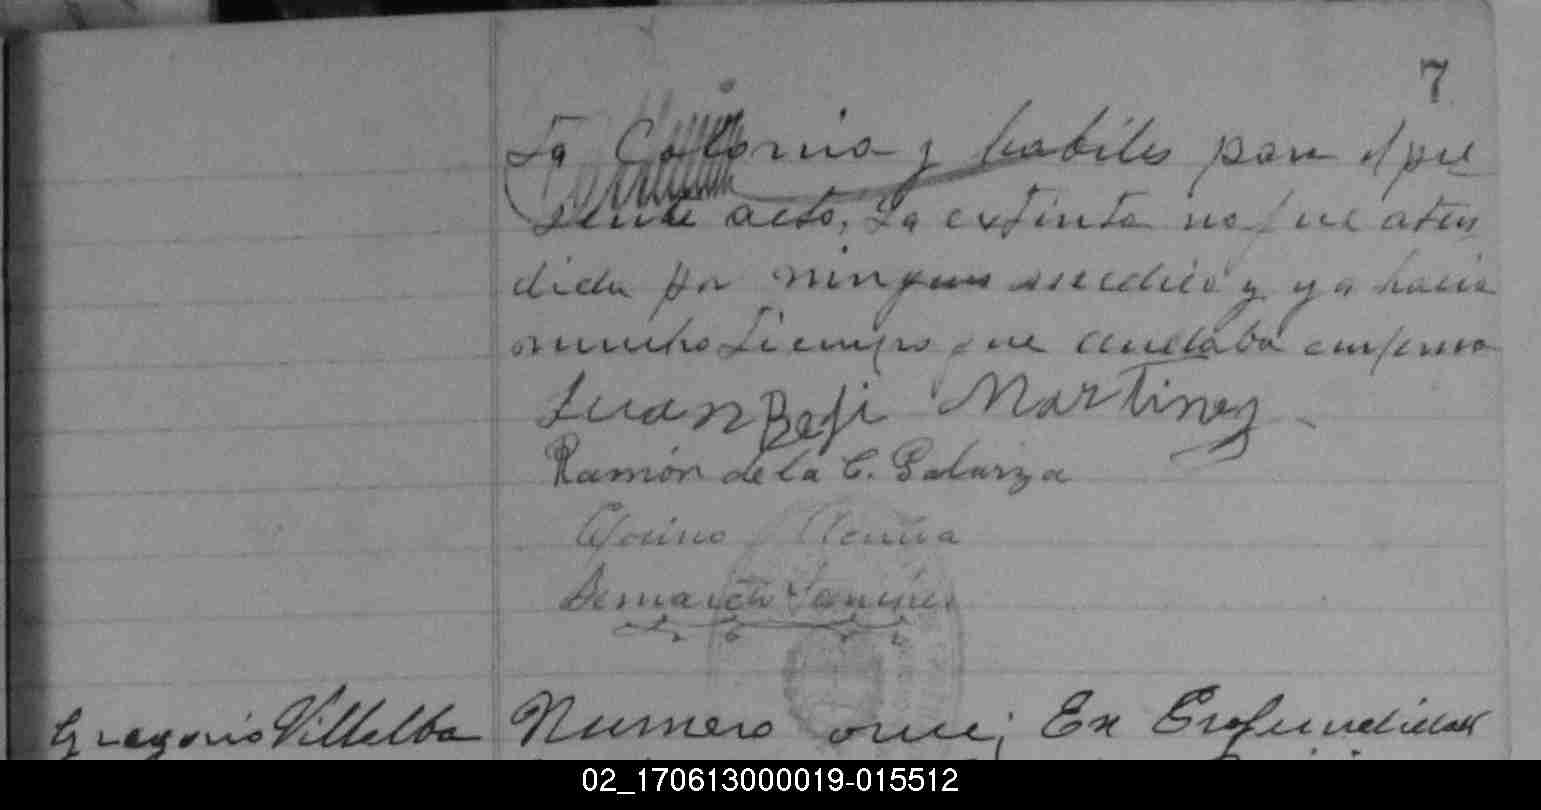 7
ta Colonia y habiles para el pre
sente acto, La extinta no fue aten
dida por ningun medico y ya hacia
mucho tiempo que andaba enferma
Juan Martinez
Ramón de la C. Galarza
Gregorio Villalba Numero once; En Profundidad
02_170613000019-015512